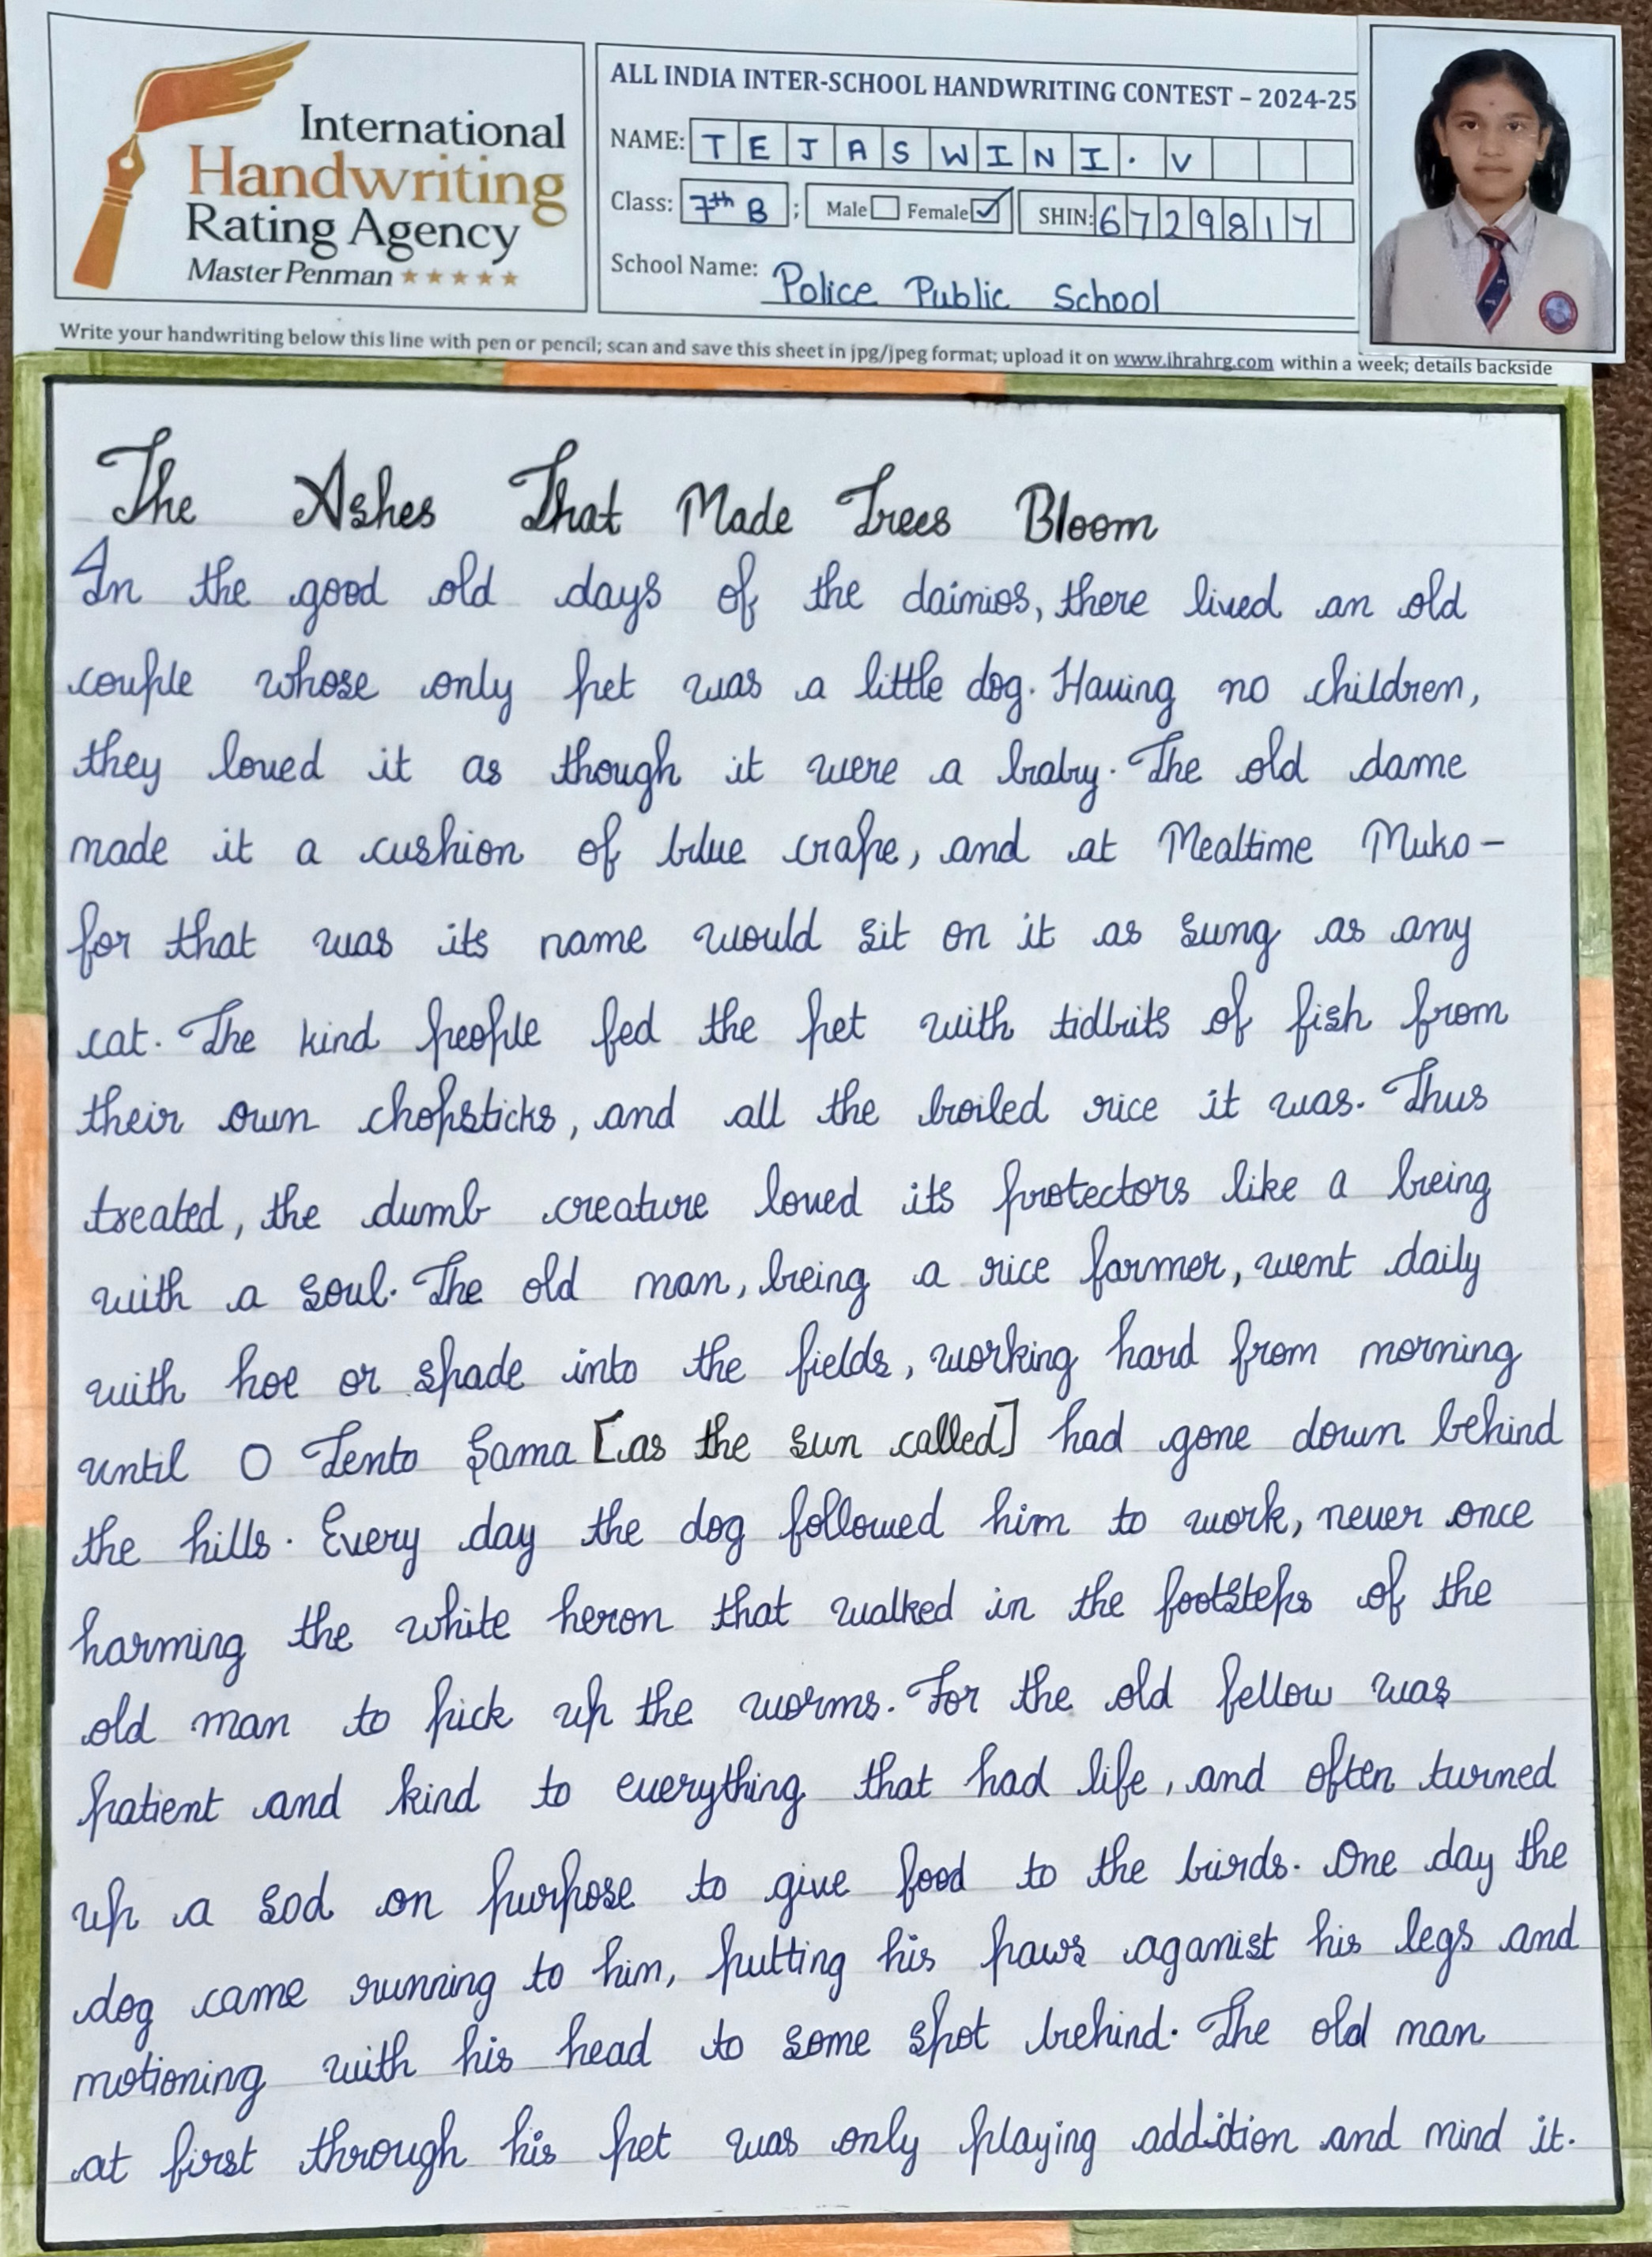 International
Handwriting
Rating Agency
Master Penman ★★★★★
ALL INDIA INTER-SCHOOL HANDWRITING CONTEST – 2024-25
NAME: TEJASWINI. V
Class: 7th B ; Male ☐ Female ☑ SHIN: 6729817
School Name: Police Public School
Write your handwriting below this line with pen or pencil; scan and save this sheet in jpg/jpeg format; upload it on www.ihrahrg.com within a week; details backside
The Ashes That Made Trees Bloom
In the good old days of the daimios, there lived an old
couple whose only pet was a little dog. Having no children,
they loved it as though it were a baby. The old dame
made it a cushion of blue crape, and at Mealtime Muko –
for that was its name would sit on it as sung as any
cat. The kind people fed the pet with tidbits of fish from
their own chopsticks, and all the broiled rice it was. Thus
treated, the dumb creature loved its protectors like a being
with a soul. The old man, being a rice farmer, went daily
with hoe or spade into the fields, working hard from morning
until O Tento Sama [as the sun called] had gone down behind
the hills. Every day the dog followed him to work, never once
harming the white heron that walked in the footsteps of the
old man to pick up the worms. For the old fellow was
patient and kind to everything that had life, and often turned
up a sod on purpose to give food to the birds. One day the
dog came running to him, putting his paws aganist his legs and
motioning with his head to some spot behind. The old man
at first through his pet was only playing addition and mind it.